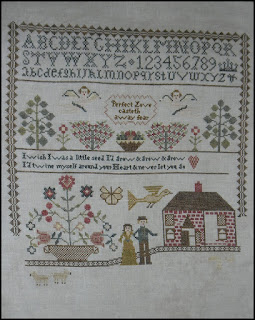 ABCDEFGHIJKLMNOPQR
STVWXYZ 123456789
abcdefghijklmnopqrstuvwxyz
Perfect Love
casteth
away fear
I wish I was a little seed I'd grow & grow & grow
I'd twine myself around your Heart & never let you go